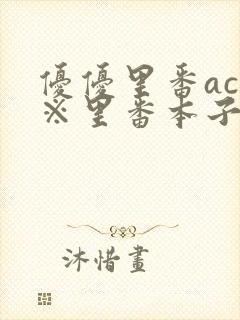 優優里番ac
※里番本子
沐惜畫